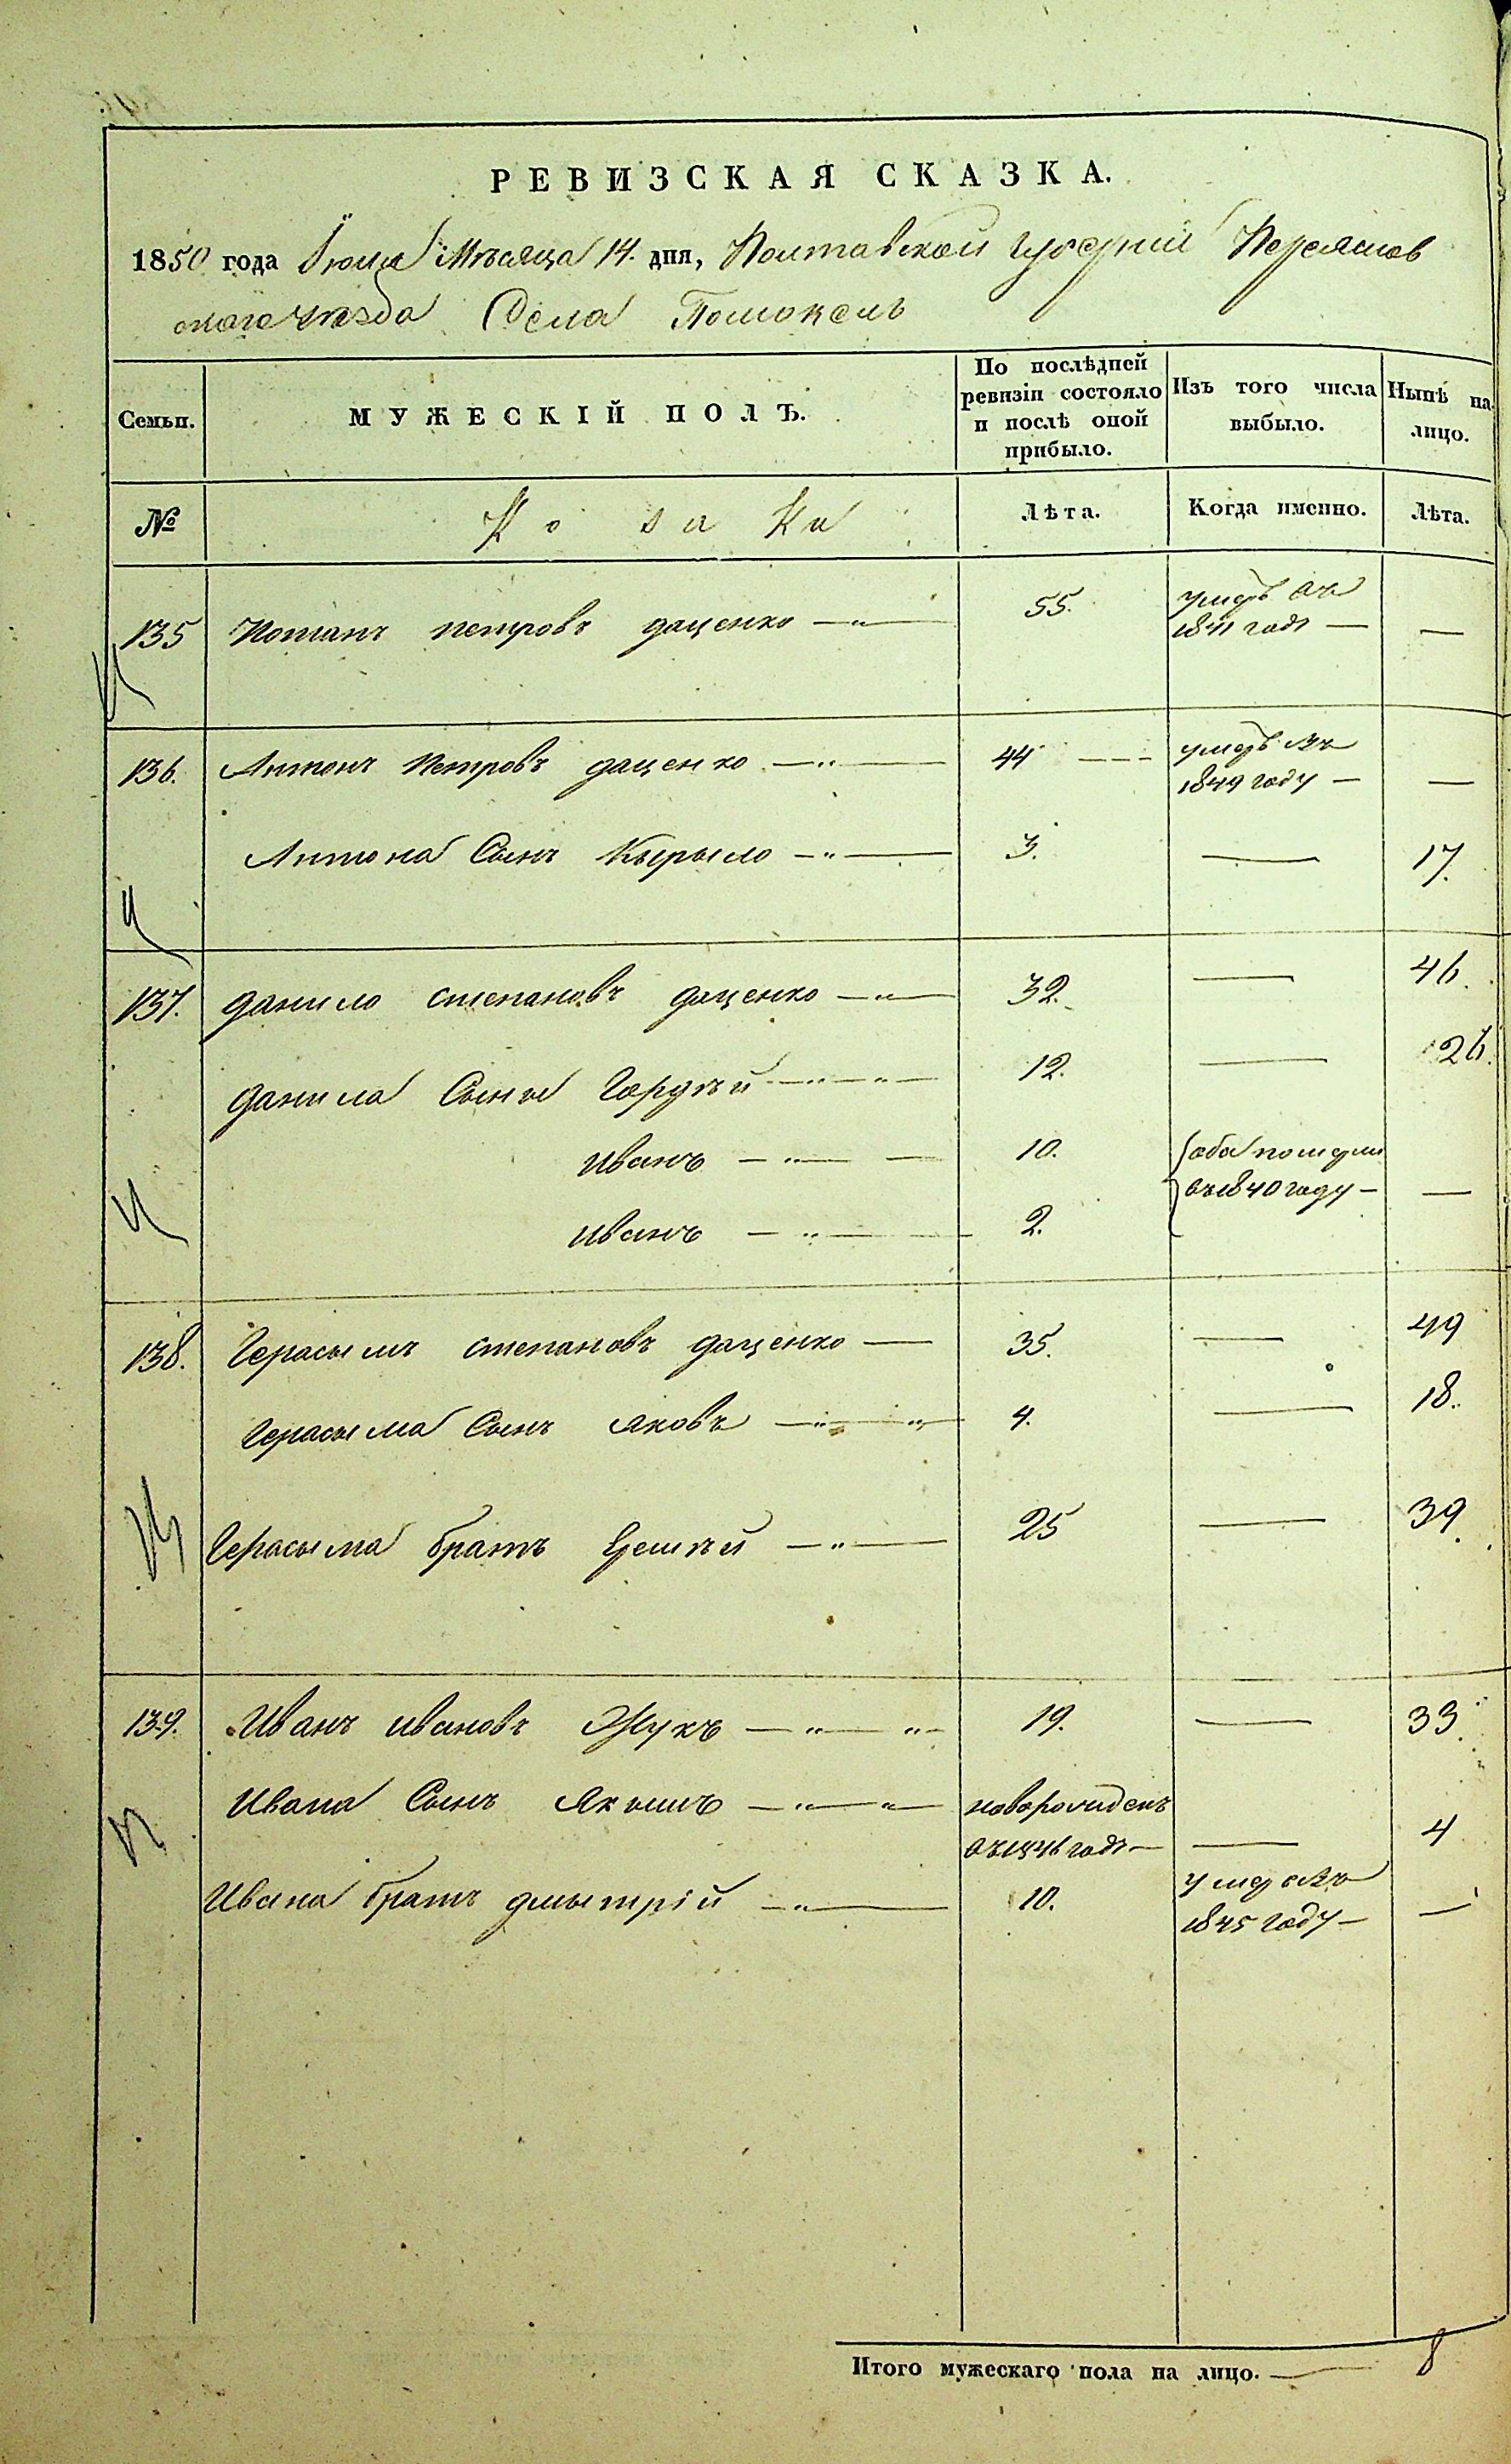 РЕВИЗСКАЯ СКАЗКА.
1850 года Іюля Мѣсяца 14. дня, Полтавской Губерніи Переяслов
скаго уѣзда Села Помоклъ
Семьи. МУЖЕСКІЙ ПОЛЪ. По послѣдней ревизіи состояло и послѣ оной прибыло. Изъ того числа выбыло. Нынѣ на лицо.
№ Козаки Лѣта. Когда именно. Лѣта.
135 Потапъ петровъ даценко —"— 55. умеръ въ
1841 годѣ — —
136. Антонъ Петровъ даценко —"— 44 --- умеръ въ
1849 году — —
Антона Сынъ Кырыло —"— 3. — 17.
137. данило степановъ даценко —"— 32. — 46.
данила Сыны Гордѣй —"—"— 12. — 26.
иванъ —"— — 10. оба померли
иванъ —"— — 2. въ 1840 году — —
138. Герасымъ степановъ даценко — 35. — 49
Герасыма Сынъ яковъ —"—" 4. — 18.
Герасыма братъ Еремѣй —"— 25 — 39.
139. Иванъ ивановъ Жукъ —"— "- 19. — 33.
Ивана Сынъ Якымъ —"—"— новорожденъ
въ 1846 годѣ — — 4
Ивана братъ дмытрій —"— 10. умеръ въ
1845 году — —
Итого мужескаго пола на лицо. — 8